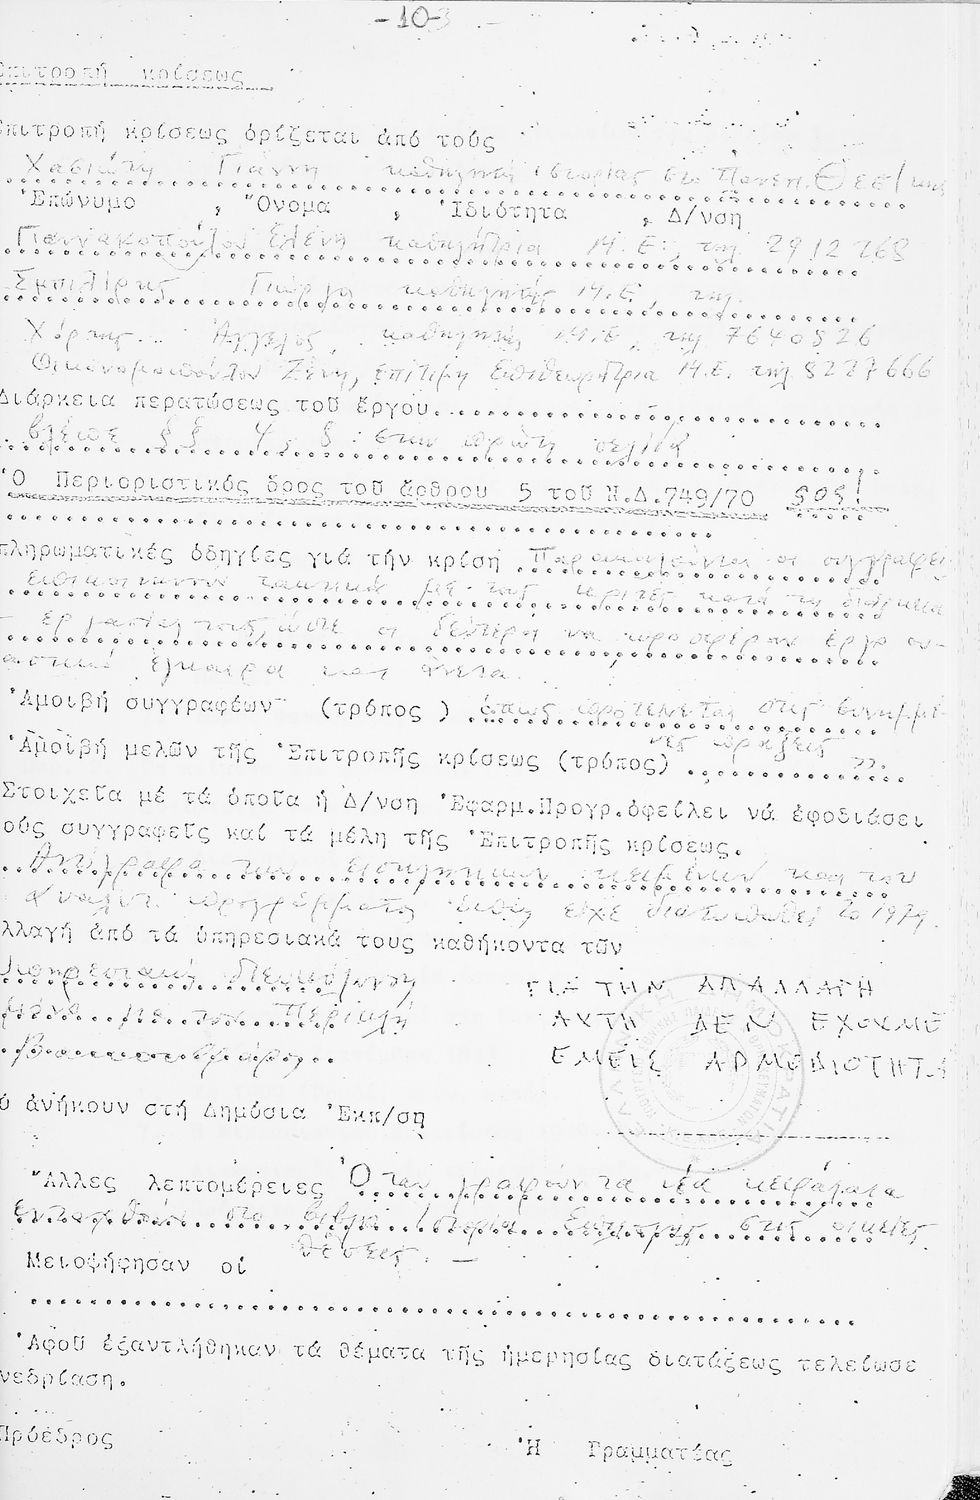 -10-
Επιτροπή κρίσεως
Επιτροπή κρίσεως ὁρίζεται ἀπό τούς
Χασιώτη Γιάννη καθηγητή ἱστορίας στο Πανεπ. Θεσ/κης
Ἐπώνυμο , Ὄνομα , Ἰδιότητα , Δ/νση
Γιαννακοπούλου Ελένη καθηγήτρια Μ.Ε., τηλ. 2912768
Γιώργο καθηγητής Μ.Ε., τηλ.
Χόρτης Ἄγγελος, καθηγητής Μ.Ε, τηλ 7640826
Οικονομοπούλου Ζένη, ἐπίτιμη Επιθεωρήτρια Μ.Ε. τηλ 8227666
Διάρκεια περατώσεως τοῦ ἔργου.
βλέπε §§ 4, 8 στην πρώτη σελίδα
Ὁ Περιοριστικός ὅρος τοῦ ἄρθρου 5 τοῦ Ν.Δ.749/70 SOS!
πληρωματικές ὁδηγίες γιά τήν κρίση Παρακαλούνται οι συγγραφεί
επικοινωνούν τακτικά με τους κριτές κατά τη διάρκεια
εργασίας τους, ώστε οι δεύτεροι να προσφέρουν έργο ου-
αστικό έγκαιρα και άνετα.
Ἀμοιβή συγγραφέων (τρόπος ) ὅπως προτείνεται στις συνημμέ-
νες πράξεις
Ἀμοιβή μελῶν τῆς Ἐπιτροπῆς κρίσεως (τρόπος) "
Στοιχεῖα μέ τά ὁποῖα ἡ Δ/νση Ἐφαρμ.Προγρ.ὀφείλει νά ἐφοδιάσει
ούς συγγραφεῖς καί τά μέλη τῆς Ἐπιτροπῆς κρίσεως.
Αντίγραφα των εισηγητικών κειμένων και του
αναλυτ. προγράμματος όπως είχε διατυπωθεί το 1979.
λλαγή ἀπό τά ὑπηρεσιακά τους καθήκοντα τῶν
Υπηρεσιακή
μόνο για τον Περικλή
ΓΙΑ ΤΗΝ ΑΠΑΛΛΑΓΗ
ΑΥΤΗ ΔΕΝ ΕΧΟΥΜΕ
ΕΜΕΙΣ ΑΡΜΟΔΙΟΤΗΤΑ
ύ ἀνήκουν στή Δημόσια Ἐκπ/ση
Ἄλλες λεπτομέρειες Όταν γραφούν τα νέα κεφάλαια
ενταχθούν στο βιβλίο ιστορία στις οικείες
θέσεις. —
Μειοψήφησαν οἱ
Ἀφοῦ ἐξαντλήθηκαν τά θέματα τῆς ἡμερησίας διατάξεως τελείωσε
νεδρίαση.
Πρόεδρος
Ἡ Γραμματέας